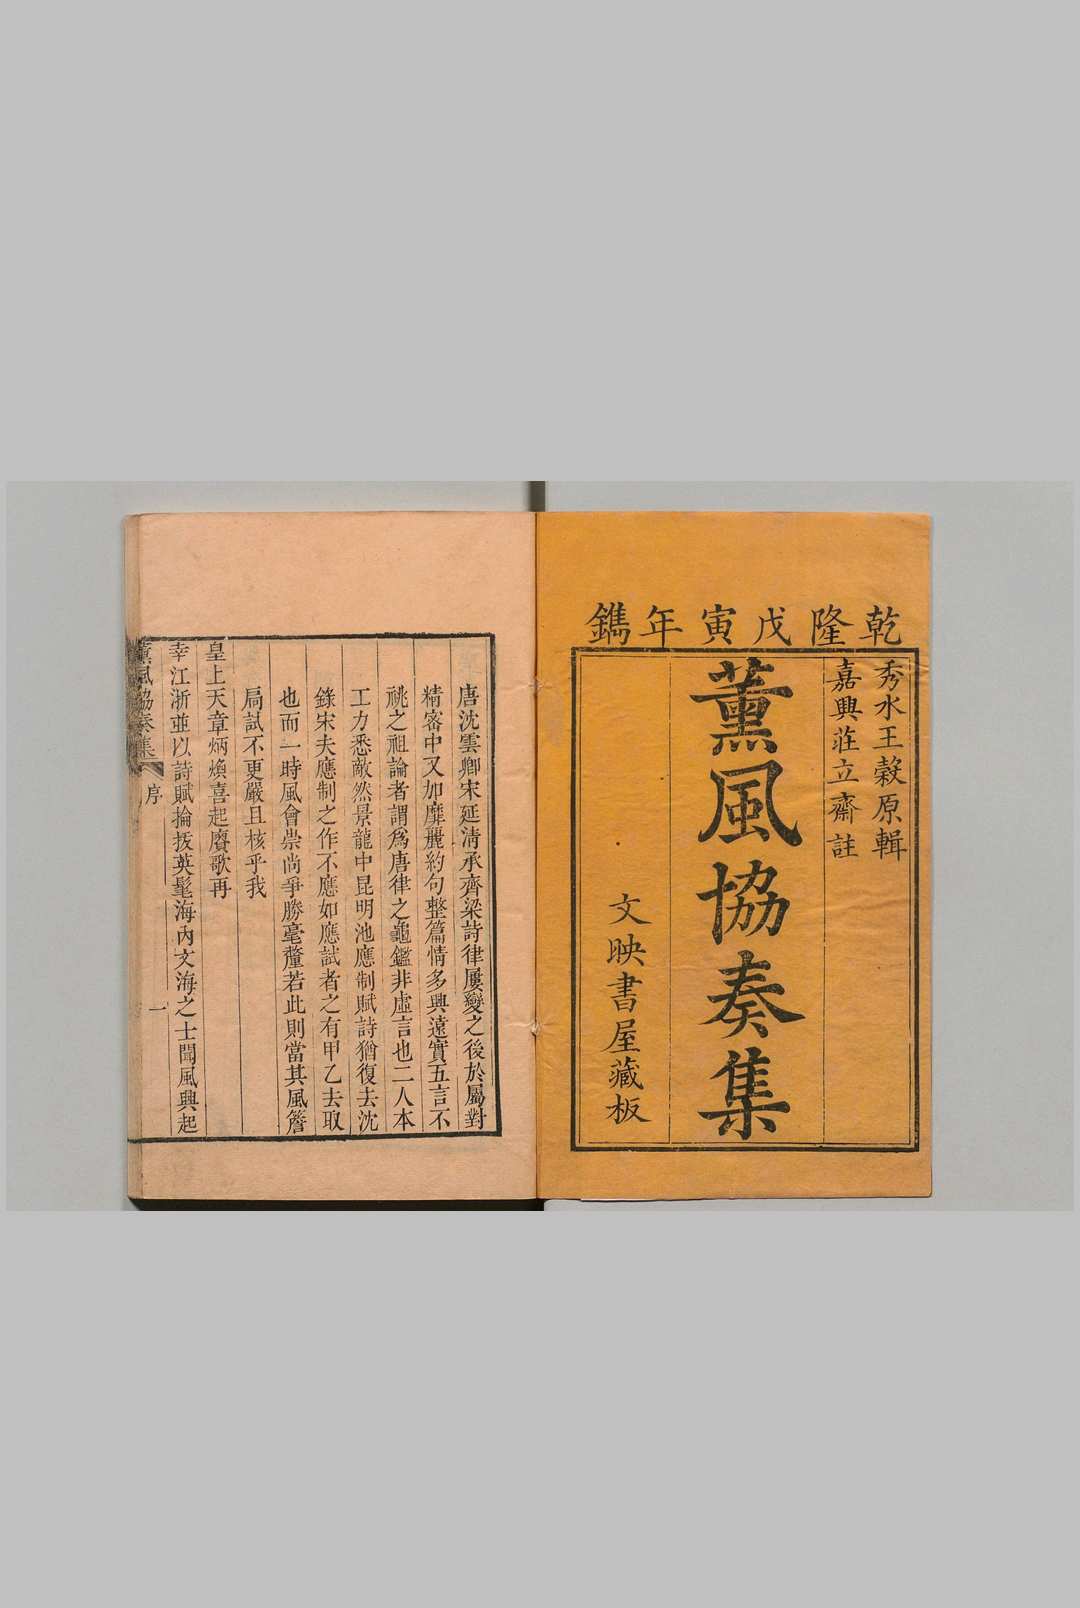 乾隆戊寅年鐫
秀水王穀原輯
嘉興莊立齋註
薰風協奏集
文映書屋藏板
唐沈雲卿宋延清承齊梁詩律屢變之後於屬對
精密中又加靡麗約句整篇情多興遠實五言不
祧之祖論者謂爲唐律之龜鑑非虛言也二人本
工力悉敵然景龍中昆明池應制賦詩猶復去沈
錄宋夫應制之作不應如應試者之有甲乙去取
也而一時風會崇尚爭勝毫釐若此則當其風簷
扃試不更嚴且核乎我
皇上天章炳煥喜起賡歌再
幸江浙並以詩賦掄拔英髦海內文海之士聞風興起
薰風協奏集
序
一